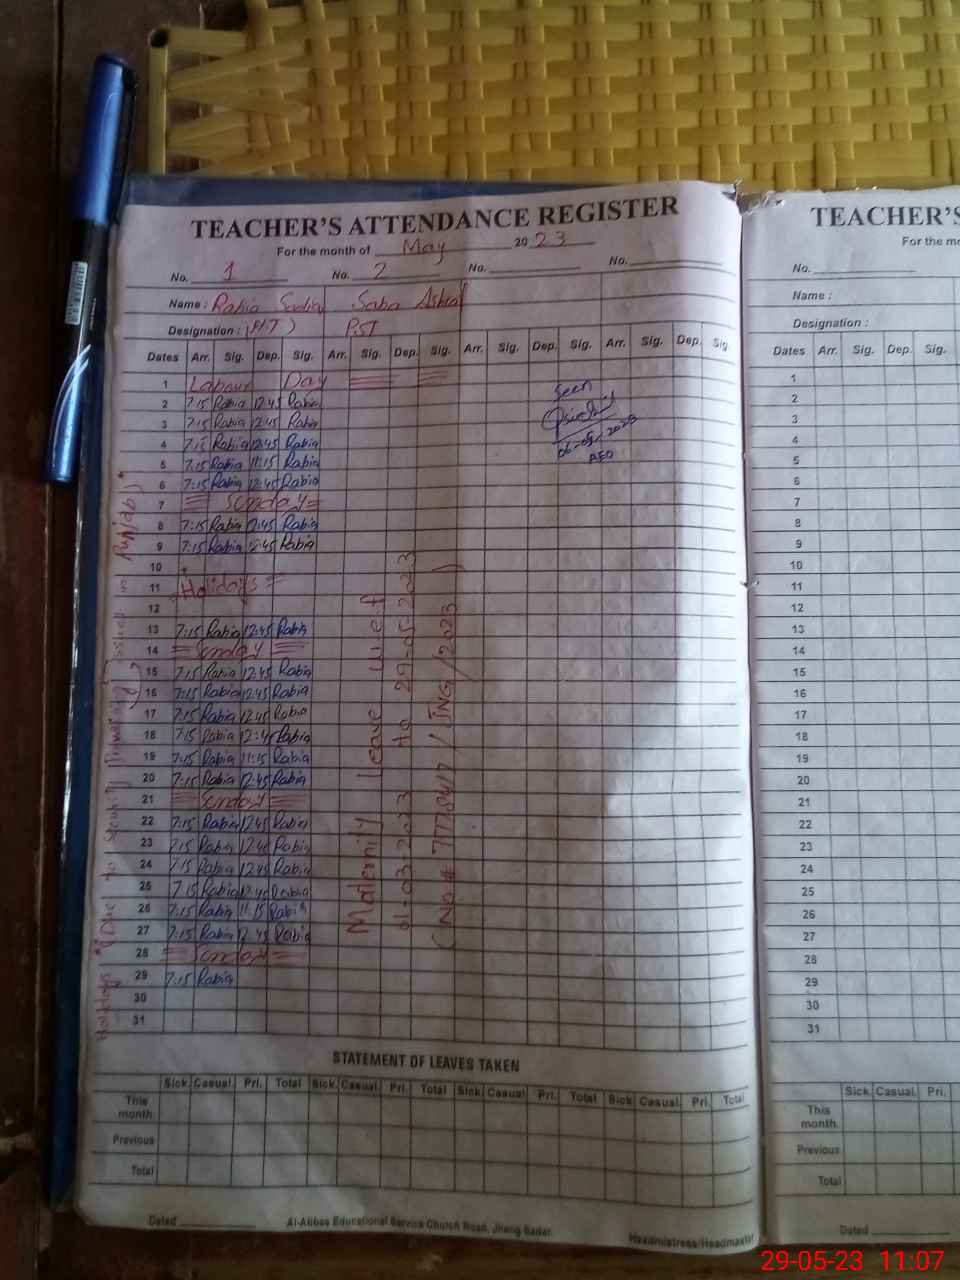 TEACHER'S ATTENDANCE REGISTER
For the month of May 2023
No. 1 No. 2 No. No.
Name : Rabia Saba Ashraf
Designation : (HT) PST
Dates Arr. Sig. Dep. Sig. Arr. Sig. Dep. Sig. Arr. Sig. Dep. Sig. Arr. Sig. Dep. Sig.
1 Labour Day
2 7:15 Rabia 12:45 Rabia
3 7:15 Rabia 12:45 Rabia
4 7:15 Rabia 12:45 Rabia
5 7:15 Rabia 11:15 Rabia
6 7:15 Rabia 12:45 Rabia
7 Sunday
8 7:15 Rabia 12:45 Rabia
9 7:15 Rabia 12:45 Rabia
10
11 Holidays
12
13 7:15 Rabia 12:45 Rabia
14 Sunday
15 7:15 Rabia 12:45 Rabia
16 7:15 Rabia 12:45 Rabia
17 7:15 Rabia 12:45 Rabia
18 7:15 Rabia 12:45 Rabia
19 7:15 Rabia 11:15 Rabia
20 7:15 Rabia 12:45 Rabia
21 Sunday
22 7:15 Rabia 12:45 Rabia
23 7:15 Rabia 12:45 Rabia
24 7:15 Rabia 12:45 Rabia
25 7:15 Rabia 12:45 Rabia
26 7:15 Rabia 11:15 Rabia
27 7:15 Rabia 12:45 Rabia
28 Sunday
29 7:15 Rabia
30
31
Maternity Leave w.e.f
01-03-2023 to 29-05-2023
(No # /JNG/2023)
Seen
06-05-2023
AEO
Holidays (Due to in Punjab)
STATEMENT OF LEAVES TAKEN
Sick Casual Pri. Total Sick Casual Pri. Total Sick Casual Pri. Total Sick Casual Pri. Total
This month.
Previous
Total
Dated
Al-Abbas Educational Service Church Road, Jhang Sadar.
Headmistress/Headmaster
TEACHER'S
For the
No.
Name :
Designation :
Dates Arr. Sig. Dep. Sig.
1
2
3
4
5
6
7
8
9
10
11
12
13
14
15
16
17
18
19
20
21
22
23
24
25
26
27
28
29
30
31
Sick Casual Pri.
This month.
Previous
Total
Dated
29-05-23 11:07